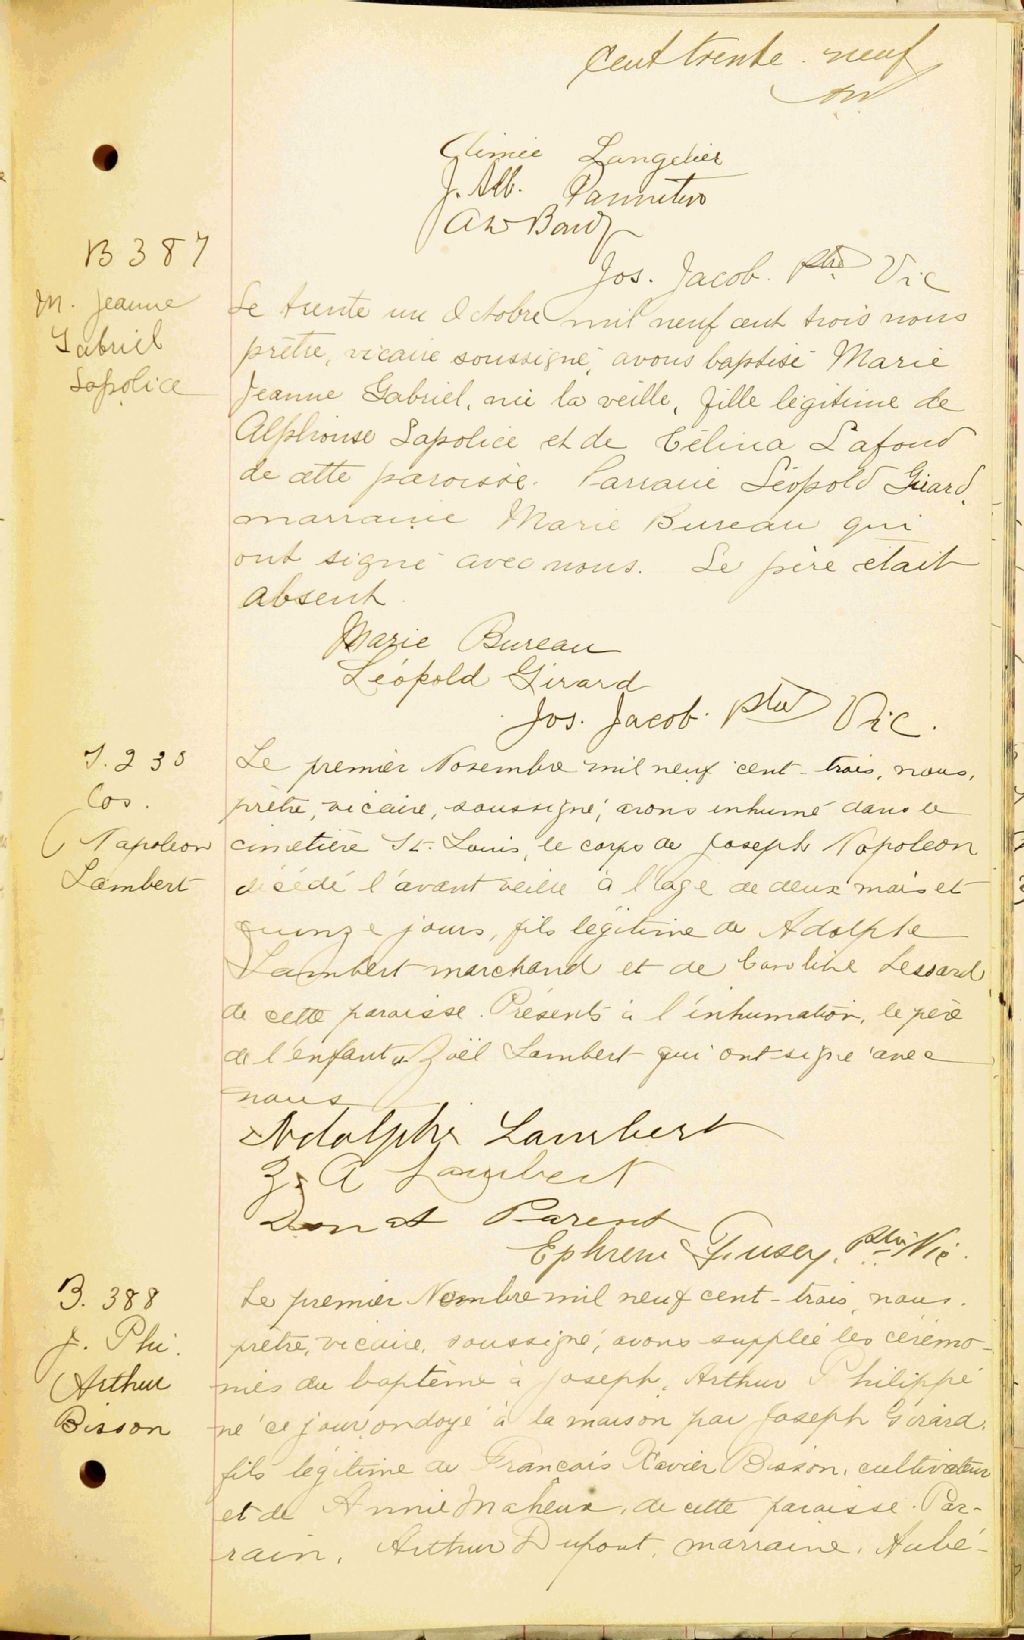 Cent trente-neuf
Climée Langelier
J. Alb. Panneton
Jos. Jacob. ptre Vic
B 387
M. Jeanne
Gabriel
Lapolice
Le trente un Octobre mil neuf cent trois nous
prêtre, vicaire soussigné, avons baptisé Marie
Jeanne Gabriel, née la veille, fille légitime de
Alphonse Lapolice et de Célina Lafond
de cette paroisse. Parrain Léopold Girard,
marraine Marie Bureau qui
ont signé avec nous. Le père était
absent.
Marie Bureau
Léopold Girard
Jos. Jacob. ptre Vic.
S. 230
Jos.
Napoleon
Lambert
Le premier Novembre mil neuf cent-trois, nous,
prêtre, vicaire, soussigné, avons inhumé dans le
cimetière St. Louis, le corps de Joseph Napoleon
décédé l'avant veille à l'age de deux mois et
quinze jours, fils légitime de Adolphe
Lambert marchand et de Caroline Lessard,
de cette paroisse. Présents à l'inhumation, le père
de l'enfant et Zoël Lambert qui ont signé avec
nous
Adolphe Lambert
Z. A Lambert
Donat Parent
Ephrem ptre Vic.
B. 388
J. Phi.
Arthur
Bisson
Le premier Novembre mil neuf cent-trois, nous.
prêtre, vicaire, soussigné, avons supplée les cérémo-
nies du baptême à Joseph, Arthur Philippe
né ce jour, ondoyé à la maison par Joseph Gérard,
fils légitime de Francois Xavier Bisson, cultivateur
et de Annie Maheux, de cette paroisse. Par-
rain, Arthur Dupont, marraine, Aubé-